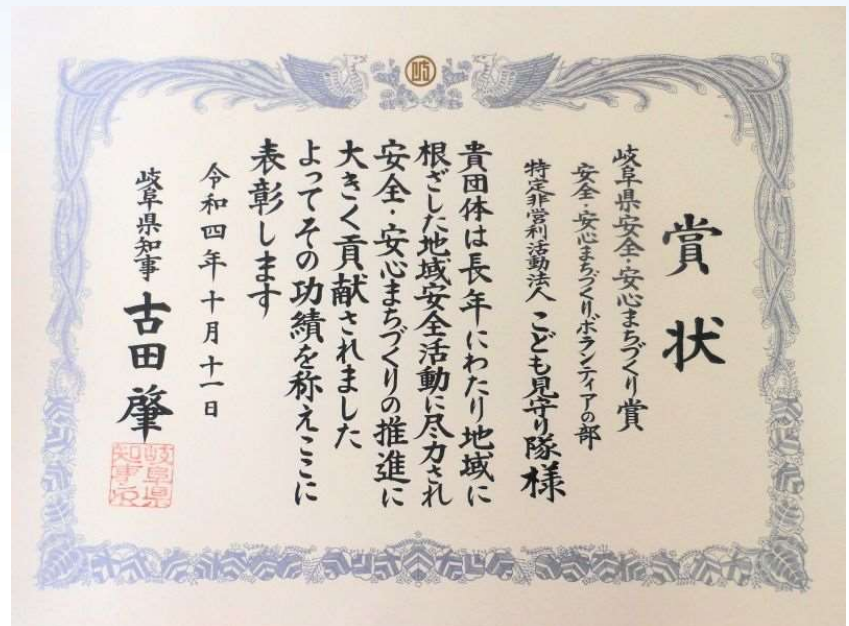 賞状
岐阜県安全・安心まちづくり賞
安全・安心まちづくりボランティアの部
特定非営利活動法人 こども見守り隊様
貴団体は長年にわたり地域に
根ざした地域安全活動に尽力され
安全・安心まちづくりの推進に
大きく貢献されました
よってその功績を称えここに
表彰します
令和四年十月十一日
岐阜県知事 古田 肇
岐阜県
知事之印